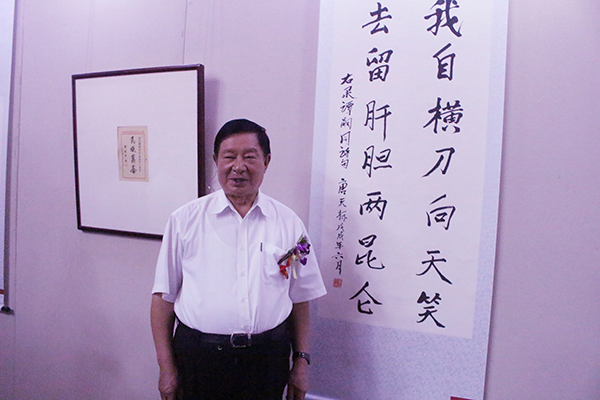 我自横刀向天笑
去留肝胆两昆仑
右录谭嗣同诗句 唐天标戊戌年六月